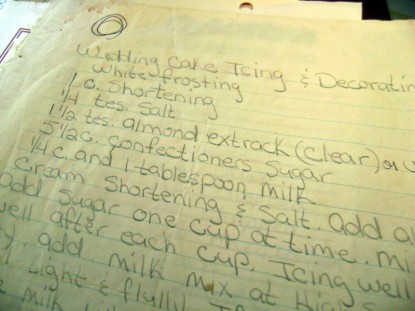 Wedding Cake Icing & Decoratin
White frosting
1 c. Shortening
1/4 tes. Salt
1 1/2 tes. almond extrack (Clear) or
5 1/2 c. confectioners Sugar
1/4 c. and 1 tablespoon milk
Cream Shortening & Salt. add al
add Sugar one cup at time. mi
well after each cup. Icing well
y. add milk mix at High
Light & flully.
milk